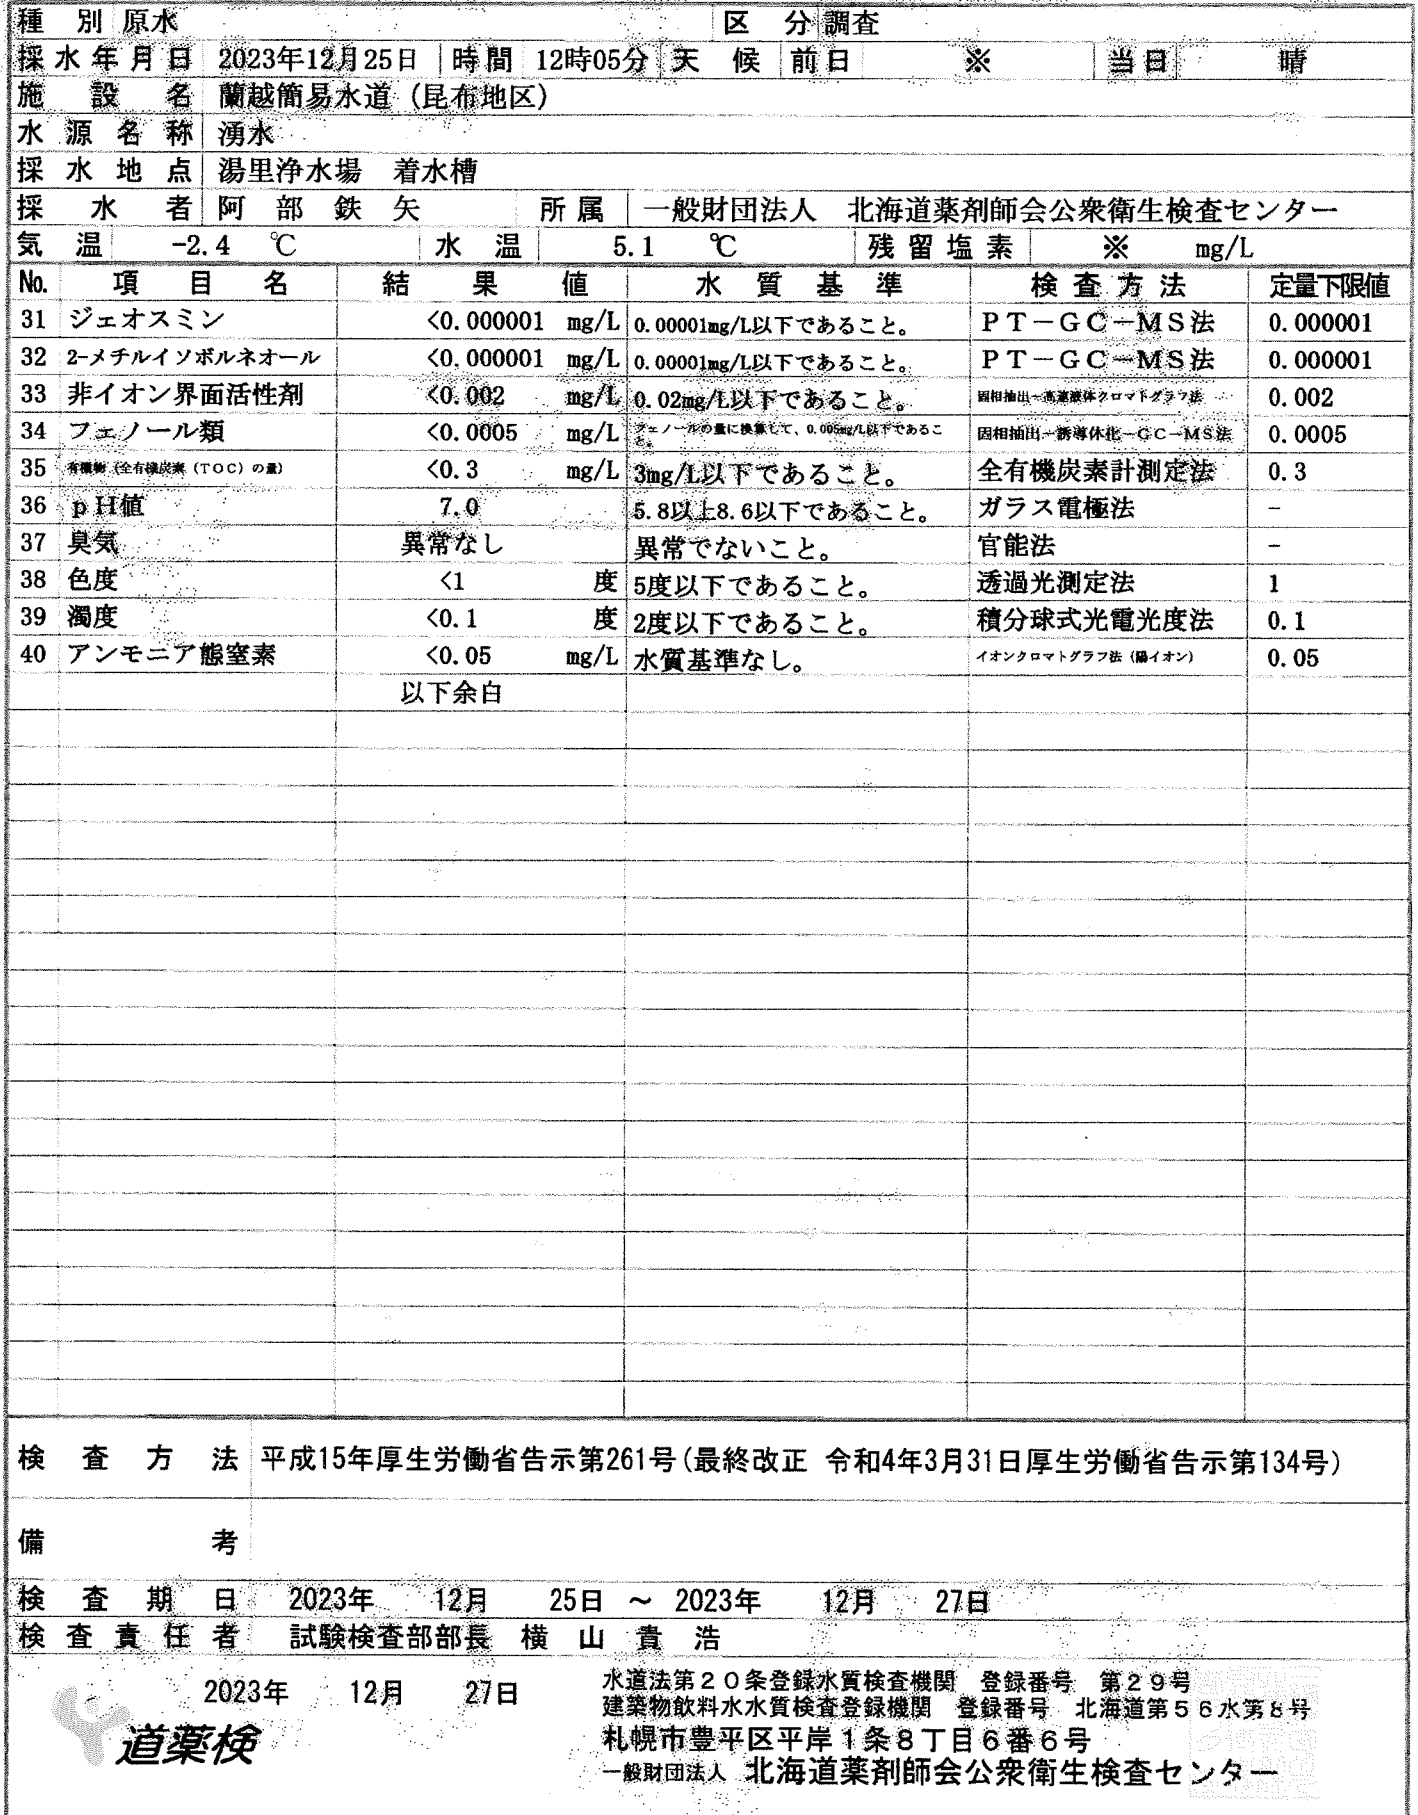 種別 原水 区分 調査
採水年月日 2023年12月25日 時間 12時05分 天候 前日 ※ 当日 晴
施設名 蘭越簡易水道（昆布地区）
水源名称 湧水
採水地点 湯里浄水場 着水槽
採水者 阿部 鉄矢 所属 一般財団法人 北海道薬剤師会公衆衛生検査センター
気温 -2.4 ℃ 水温 5.1 ℃ 残留塩素 ※ mg/L
No. 項目名 結果値 水質基準 検査方法 定量下限値
31 ジェオスミン <0.000001 mg/L 0.00001mg/L以下であること。 ＰＴ－ＧＣ－ＭＳ法 0.000001
32 2-メチルイソボルネオール <0.000001 mg/L 0.00001mg/L以下であること。 ＰＴ－ＧＣ－ＭＳ法 0.000001
33 非イオン界面活性剤 <0.002 mg/L 0.02mg/L以下であること。 固相抽出－高速液体クロマトグラフ法 0.002
34 フェノール類 <0.0005 mg/L フェノールの量に換算して、0.005mg/L以下であること。 固相抽出－誘導体化－ＧＣ－ＭＳ法 0.0005
35 有機物（全有機炭素（ＴＯＣ）の量） <0.3 mg/L 3mg/L以下であること。 全有機炭素計測定法 0.3
36 ｐＨ値 7.0 5.8以上8.6以下であること。 ガラス電極法 -
37 臭気 異常なし 異常でないこと。 官能法 -
38 色度 <1 度 5度以下であること。 透過光測定法 1
39 濁度 <0.1 度 2度以下であること。 積分球式光電光度法 0.1
40 アンモニア態窒素 <0.05 mg/L 水質基準なし。 イオンクロマトグラフ法（陽イオン） 0.05
以下余白
検査方法 平成15年厚生労働省告示第261号(最終改正 令和4年3月31日厚生労働省告示第134号)
備考
検査期日 2023年 12月 25日 ～ 2023年 12月 27日
検査責任者 試験検査部部長 横山 貴浩
2023年 12月 27日
水道法第２０条登録水質検査機関 登録番号 第２９号
建築物飲料水水質検査登録機関 登録番号 北海道第５６水第８号
札幌市豊平区平岸１条８丁目６番６号
道薬検
一般財団法人 北海道薬剤師会公衆衛生検査センター